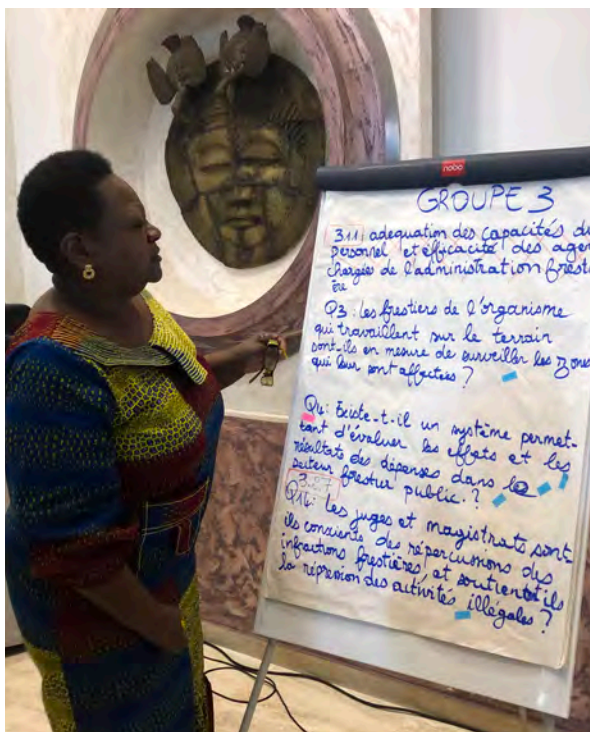 nobo
GROUPE 3
3.1.1; adequation des capacités du
personnel et efficacité des agen
chargées de l'administration foresti
ère
Q3: les frestiers de l'organisme
qui travaillent sur le terrain
sont-ils en mesure de surveiller les zones
qui leur sont affectées ?
Q4: Existe-t-il un système permet-
tant d'évaluer les effets et les
résultats des dépenses dans le
secteur forestier public.?
3.
Q14: Les juges et magistrats sont-
ils conscients des répercussions des
infractions frestières et soutiennent ils
la répression des activités illégales ?